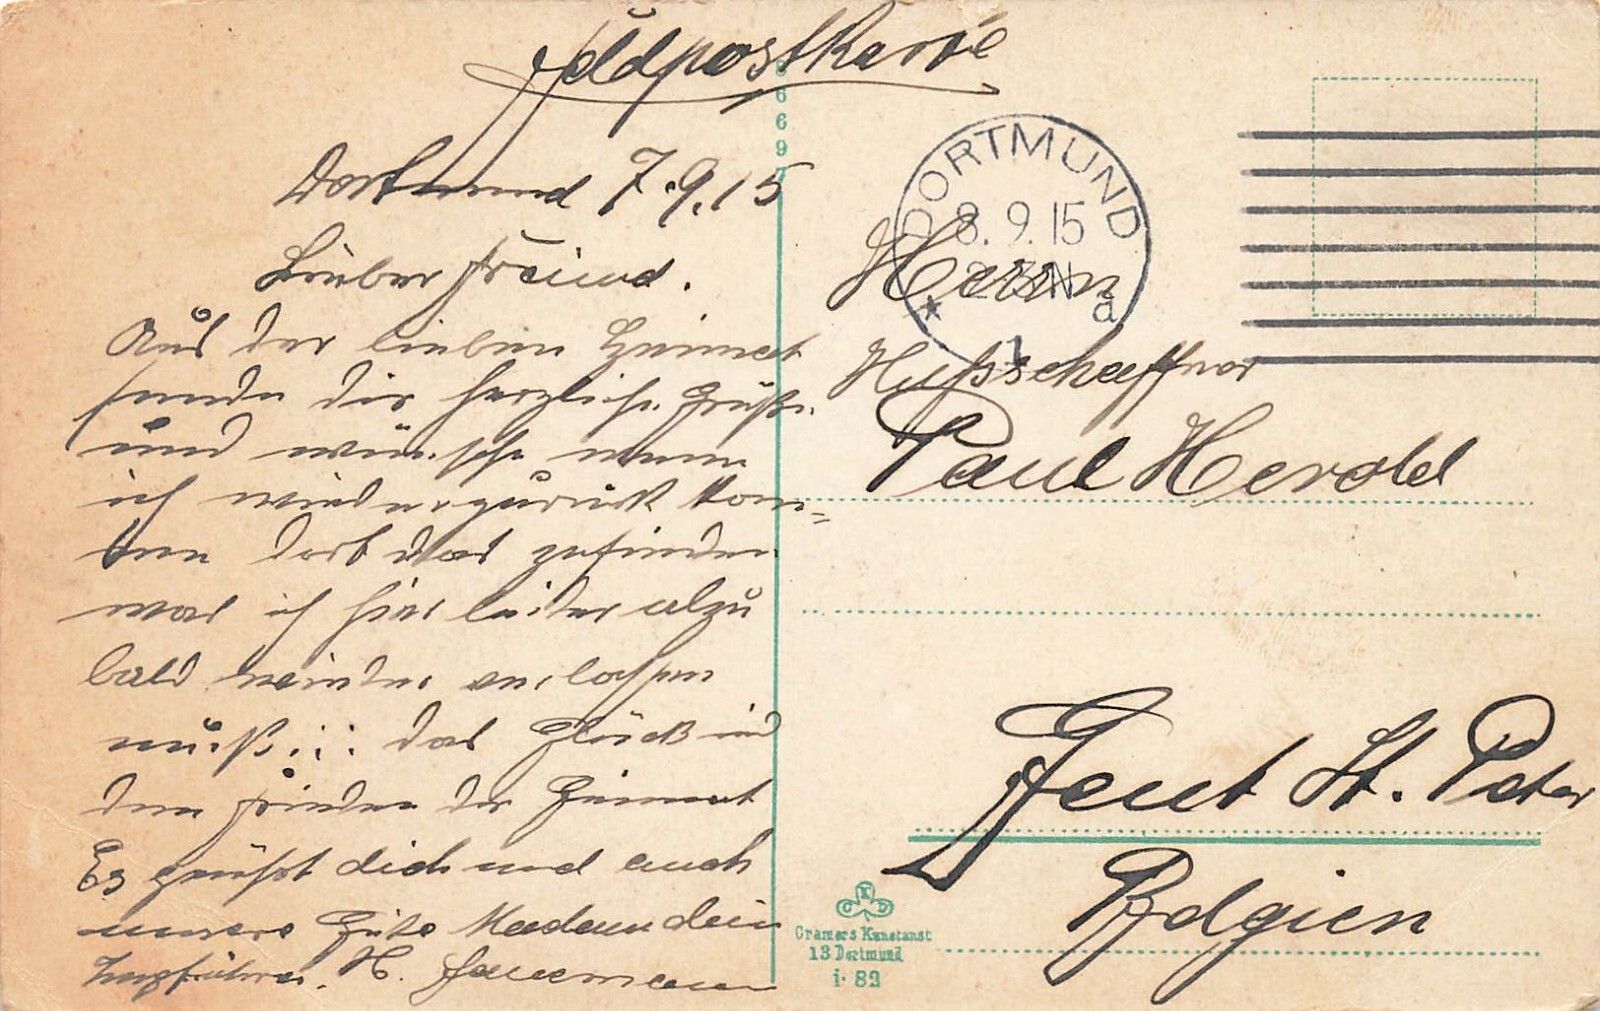 Feldpostkarte
Dortmund 7.9.15
Lieber Freund.
Aus der lieben Heimat
sende dir herzliche Grüße
und wünsche wenn
ich wieder zurück kom=
me dort das zufinden
was ich hier leider alzu
bald wieder verlassen
muß::: das Glück und
den Frieden der Heimat
Es grüßt dich und auch
unsere Gute Madam dein
Zugführer. H.
6697
DORTMUND
8.9.15
N
* 1 a
Herrn
Paul Herold
Gent St. Peter
Belgien
CKD
Cramers Kunstanst
13 Dortmund
i. 82